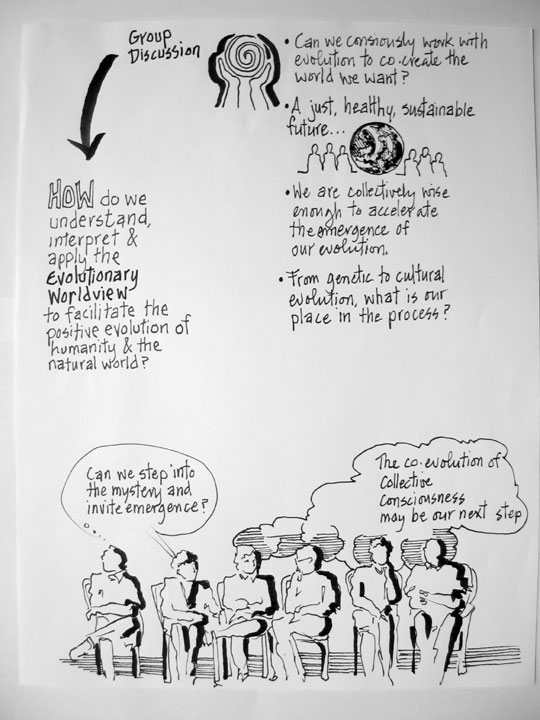 Group
Discussion
HOW do we
understand,
interpret &
apply the
Evolutionary
Worldview
to facilitate the
positive evolution of
humanity & the
natural world?
• Can we consiously work with
evolution to co-create the
world we want?
• A just, healthy, sustainable
future...
• We are collectively wise
enough to accelerate
the emergence of
our evolution.
• From genetic to cultural
evolution, what is our
place in the process?
Can we step into
the mystery and
invite emergence?
The co-evolution of
Collective
Consciousness
may be our next step